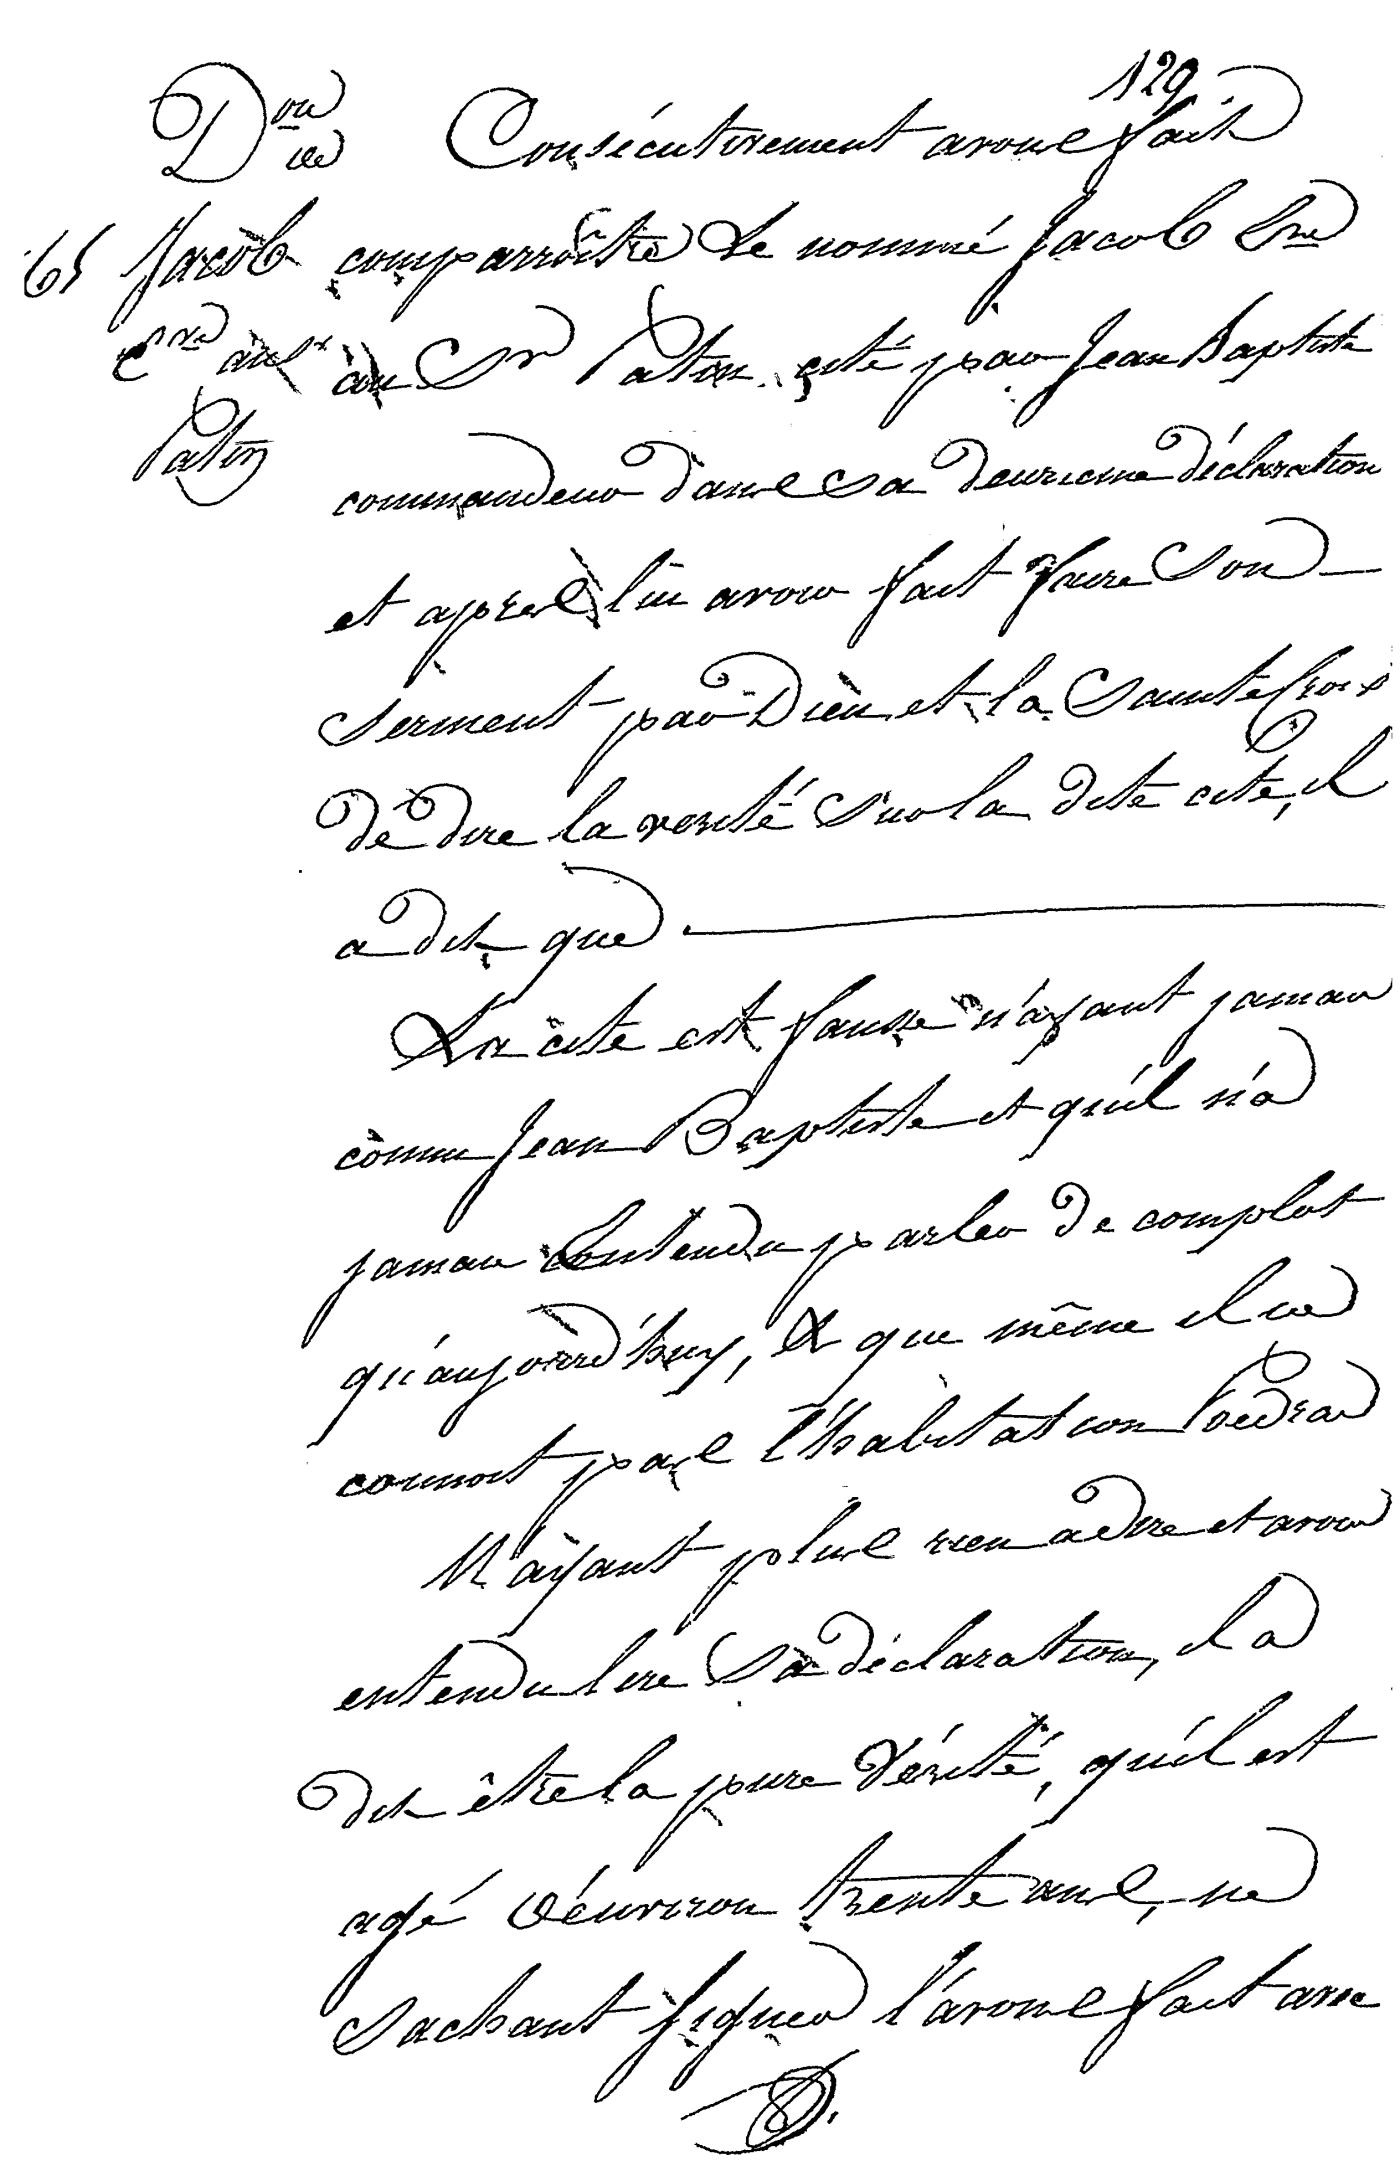 129
Don
de
65 Jacob
au Sr
Patin
Consécutivement avons fait
comparroître Le nommé Jacob
au Sr Patin cité par Jean Baptiste
commandeur dans sa deuxieme déclaration
et après lui avoir fait faire Son
serment par Dieu et la Sainte Croix
de dire la verité Sur la dite cite, il
a dit que
La cite est fausse n'ayant jamais
connu Jean Baptiste et qu'il n'a
jamais entendu parler de complot
qu'aujourd'huy, & que même il ne
connoit pas l'habitation Poedras
N'ayant plus rien a dire et avoir
entendu lire Sa déclaration, il a
dit être la pure Vérité, qu'il est
agé d'environ trente ans, ne
Sachant signer l'avons fait avec